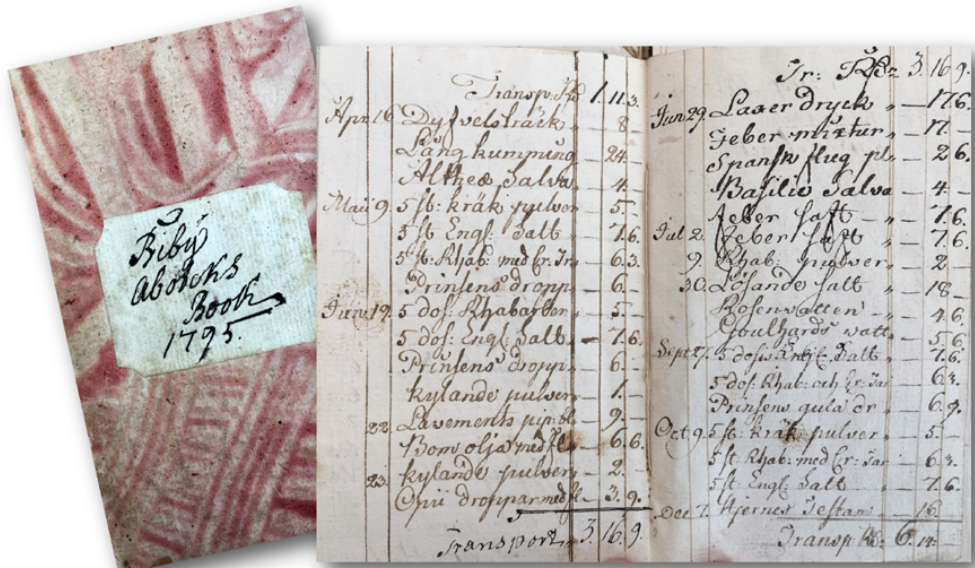 Biby
Aboteks
Book
1795.
Transp: Rd 1.11.3.
Apr: 16 Dyfvelsträck - 8 -
Lång kummin - 24 -
Althea Salva - 4 -
Maii 9. 5 st: kräk pulver - 5 -
5 st Engl. Salt - 7.6.
5 st: Rhab: med Cr: Tr: - 6.3.
Prinsens dropp: - 6 -
Junii 19. 5 dos: Rhabarber - 5 -
5 dos: Engl: Salt - 7.6.
Prinsens dropp: - 6 -
kylande pulver - 1 -
22. Lavements pip: - 9 -
Bomolja med fl: - 6.6.
kylande pulver - 2 -
23. Opii droppar med fl - 3.9.
Transport 3.16.9.
Tr: Rd: 3.16.9.
Jun: 29. Laxer dryck - 17.6.
Feber mixtur - 17 -
Spansk flug pl: - 2.6
Basilic Salva - 4 -
feber saft - 7.6.
Jul 2. feber saft - 7.6.
9. Rhab: pulver - 2 -
30. Lösande salt - 18 -
Rosenvatten - 4.6
Goulhards vatt - 5.6.
Sept 27. 5 dosis Engl: Salt - 7.6.
5 dos: Rhab: och Cr: Tar - 6.3.
Prinsens gula dr - 6.9.
Oct 9. 5 st: kräk pulver - 5 -
5 st: Rhab: med Cr: Tar - 6.3.
5 st: Engl: Salt - 7.6.
Dec 7. Hjernes Testam - 16
Transp Rd: 6.14 -